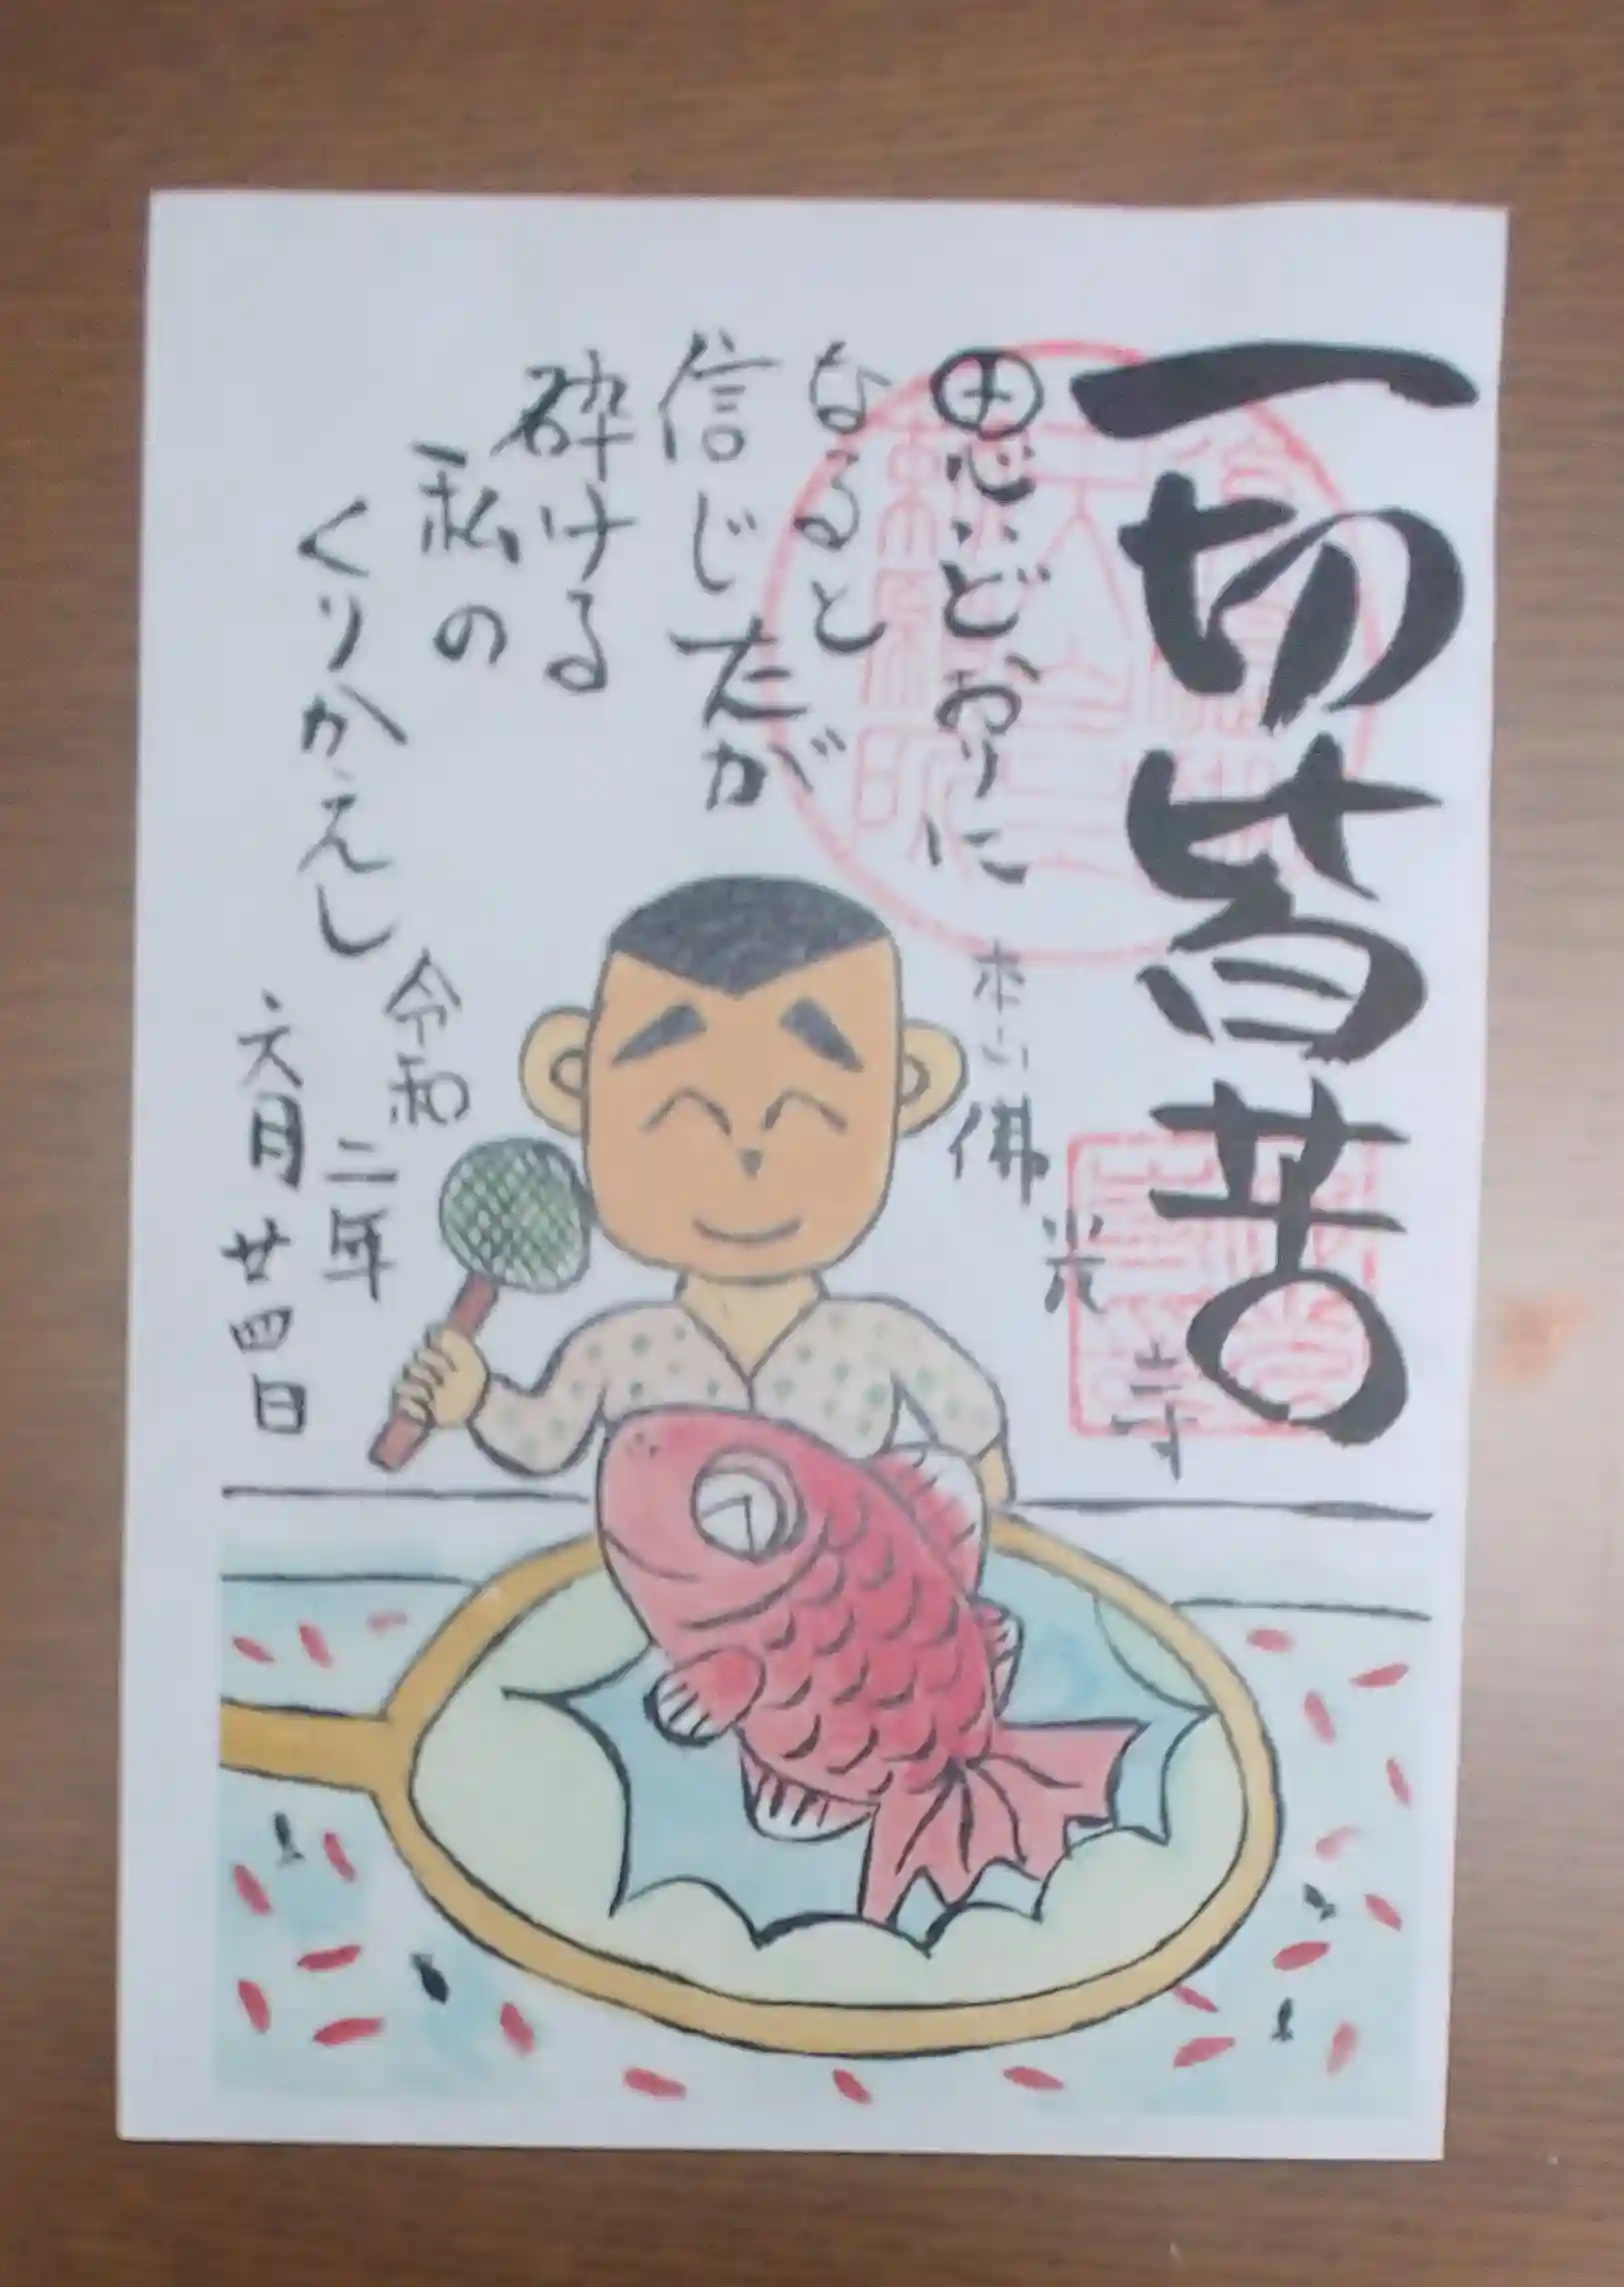 一切皆苦
思いどおりに
なると
信じたが
砕ける
私の
くりかえし
佛光寺
令和
二年
六月
廿四日